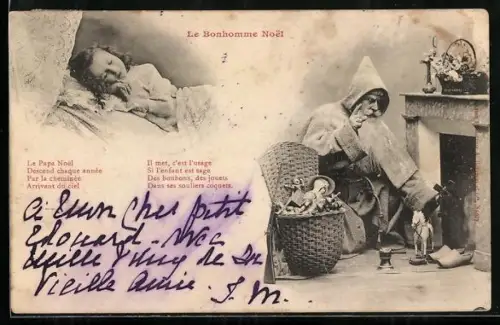 Le Bonhomme Noël
Le Papa Noël
Descend chaque année
Par la cheminée
Arrivant du ciel
Il met, c'est l'usage
Si l'enfant est sage
Des bonbons, des jouets
Dans ses souliers coquets.
cher petit
Edouard. avec
mille de
Vieille Amie. J. M.